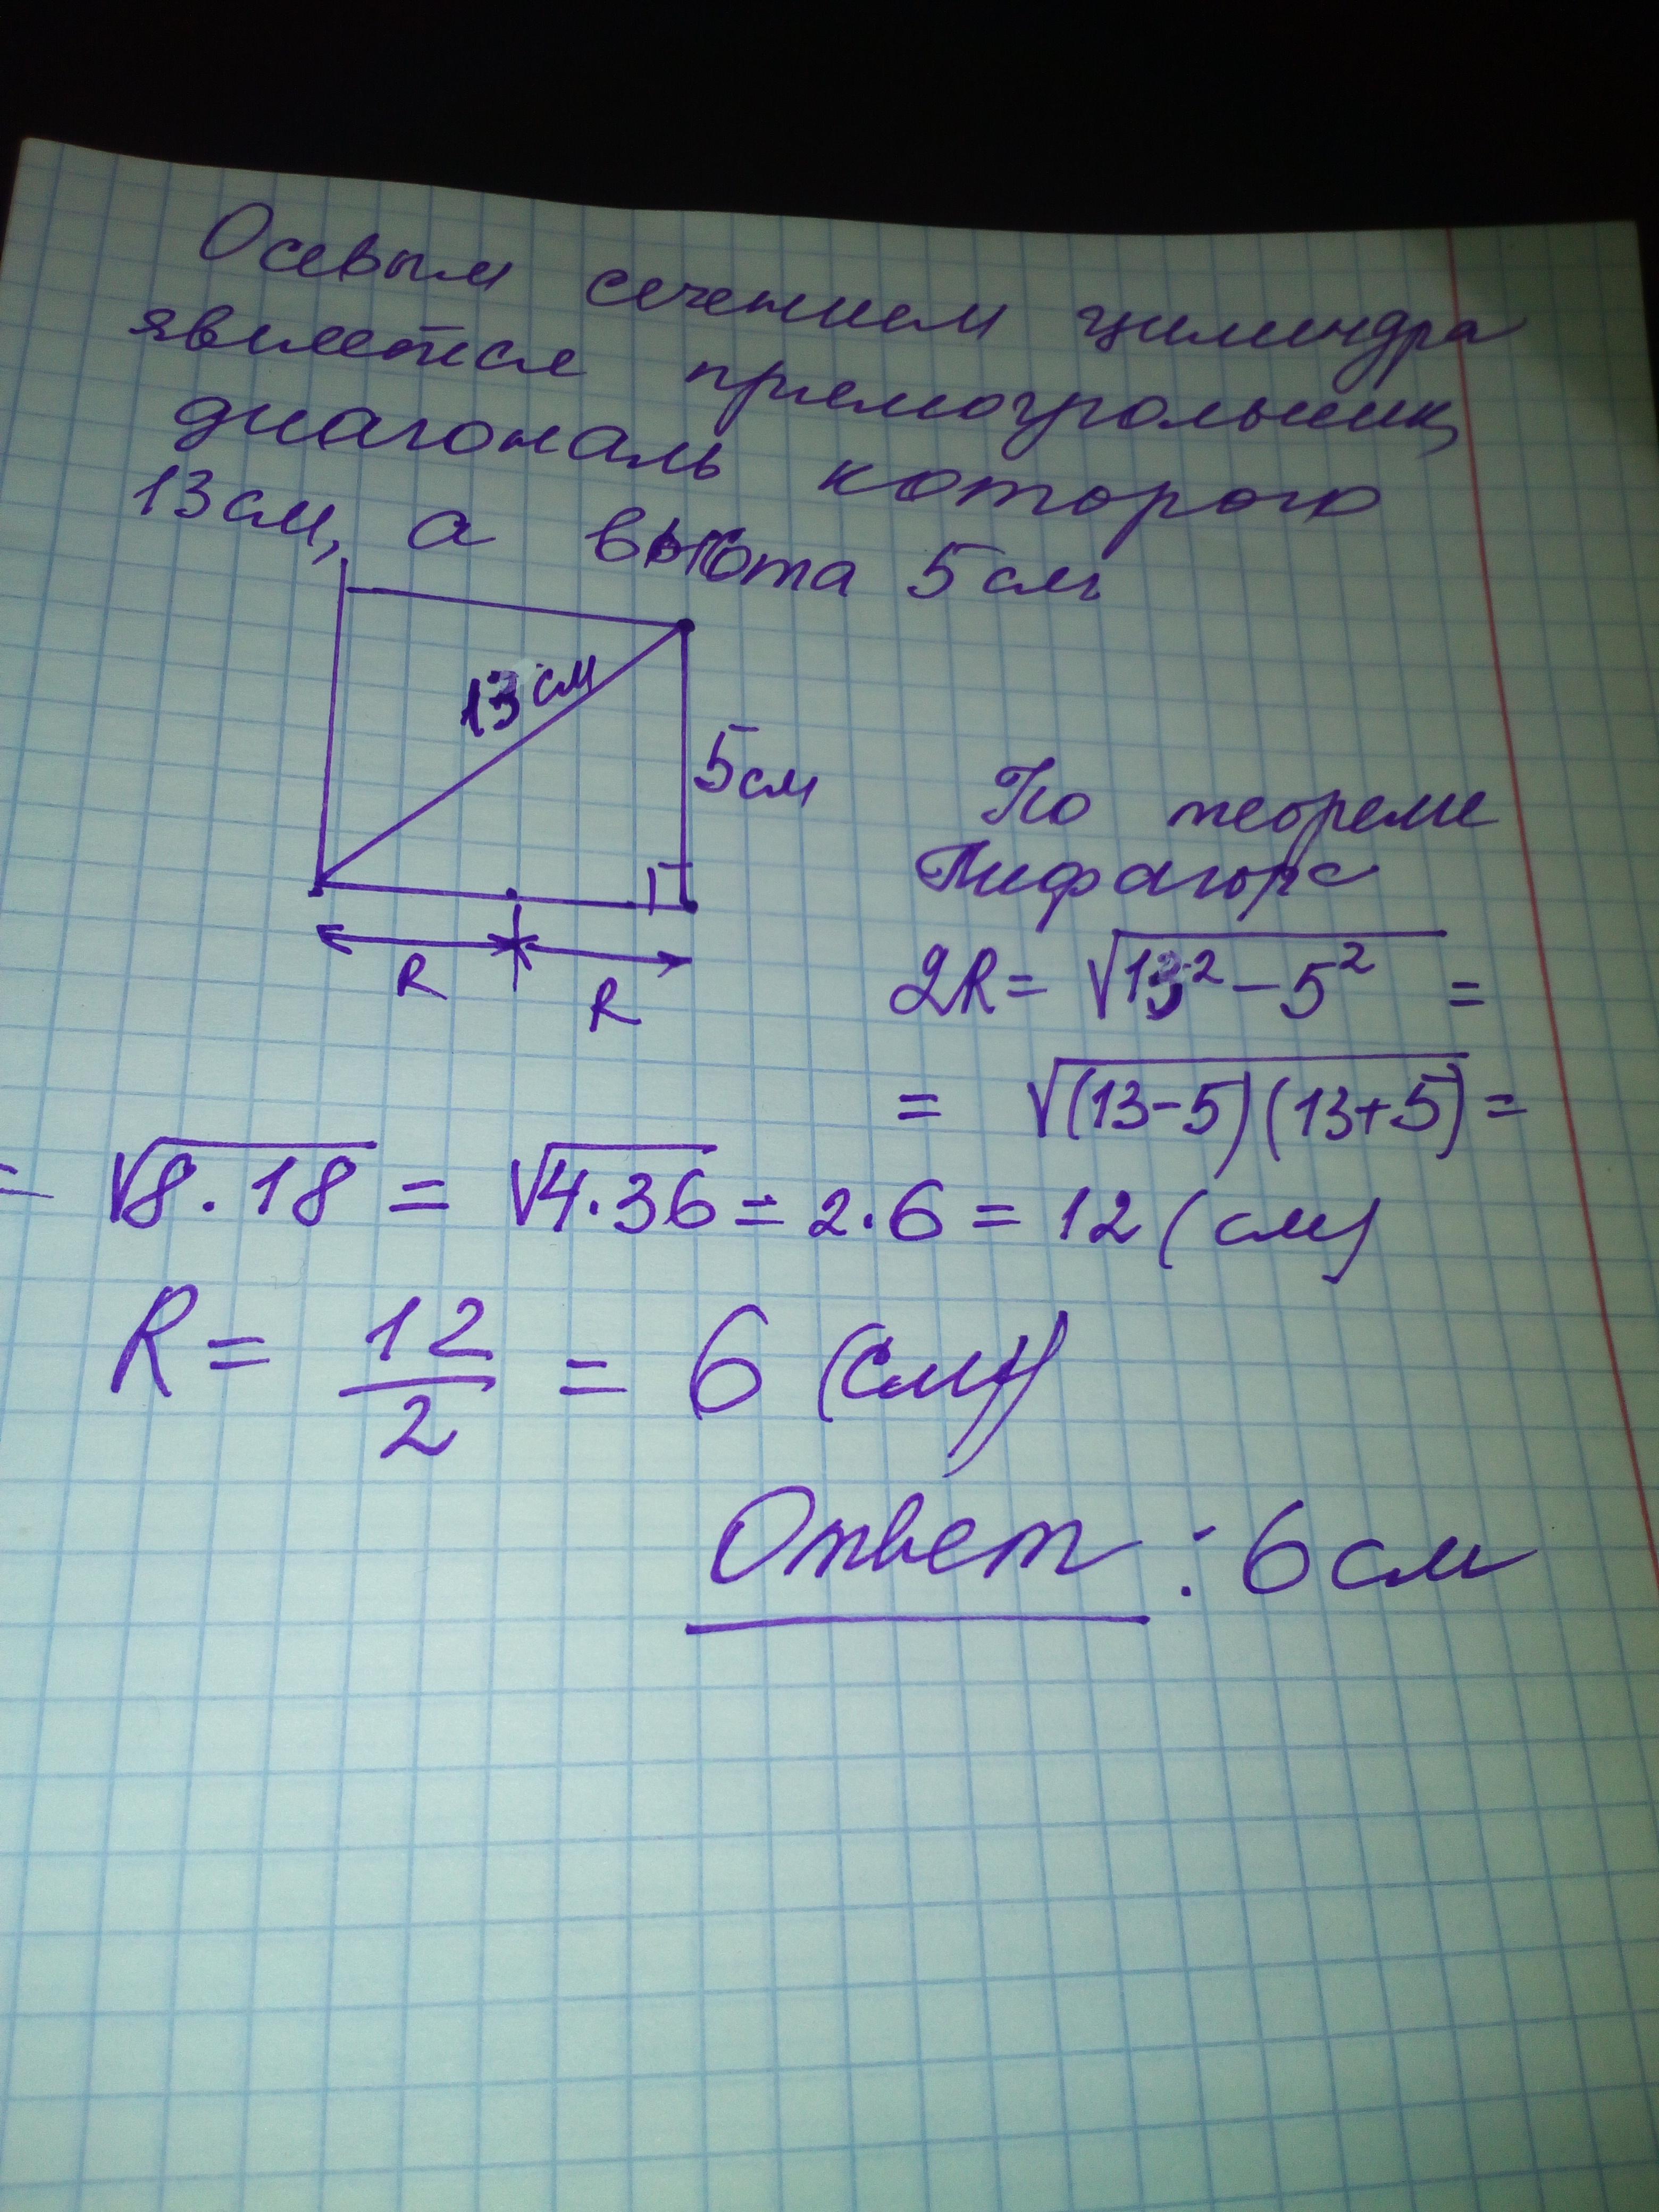 Осевым сечением цилиндра
является прямоугольник,
диагональ которого
13см, а высота 5см
13 см
5см
R
R
По теореме
Пифагора
2R = √(13² − 5²) =
= √((13−5)(13+5)) =
= √(8·18) = √(4·36) = 2·6 = 12 (см)
R = 12/2 = 6 (см)
Ответ: 6см